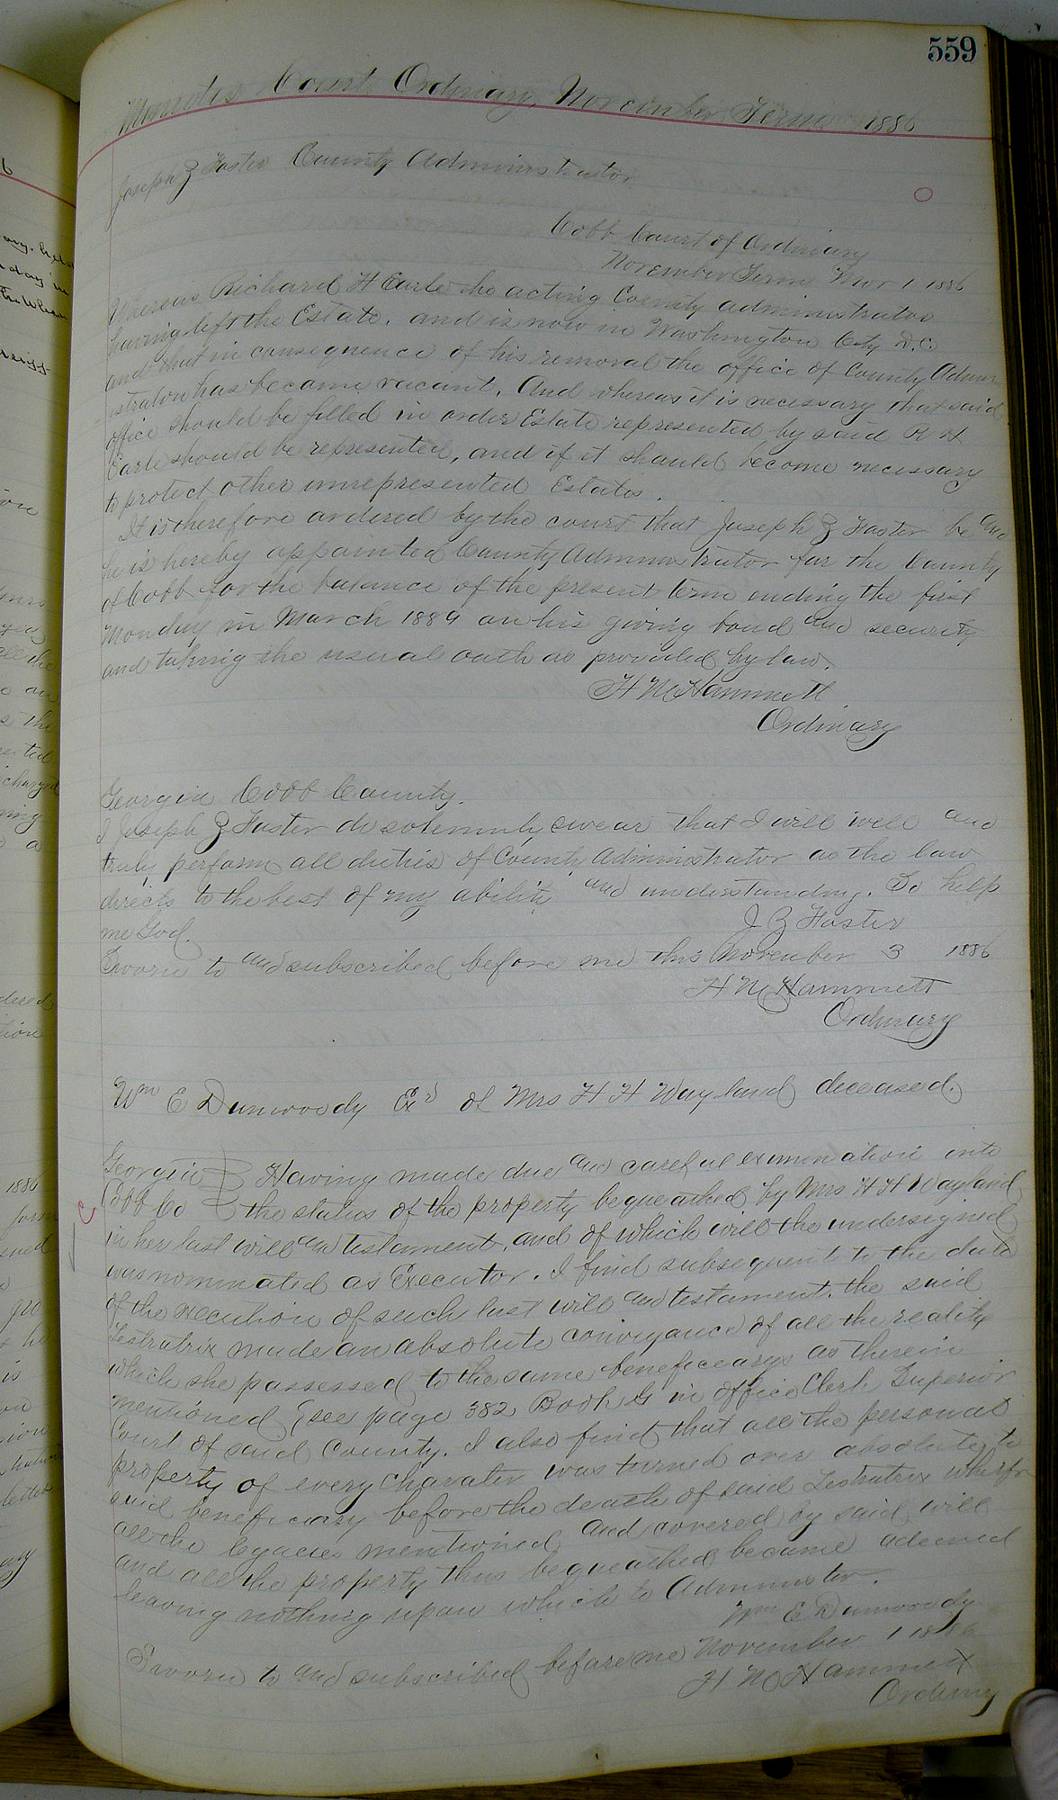 559
Minutes Court Ordinary November Term 1886
Joseph Z Foster County Administrator
Cobb Court of Ordinary
November Term Nov 1 1886
Whereas Richard H Earle the acting County administrator
having left the Estate. and is now in Washington City D.C.
and that in consequence of his removal the office of County Admin
istrator has became vacant. And whereas it is necessary that said
office should be filled in order Estate represented by said R H
Earle should be represented, and if it should become necessary
to protect other unrepresented Estates.
It is therefore ordered by the court that Joseph Z Foster be and
he is hereby appointed County Administrator for the County
of Cobb for the balance of the present term ending the first
Monday in March 1889 on his giving bond and security
and taking the usual oath as provided by law.
H M Hammett
Ordinary
Georgia Cobb County.
I Joseph Z Foster do solemnly swear that I will well and
truly perform all duties of County Administrator as the law
directs to the best of my ability and understanding. So help
me God.
J Z Foster
Sworn to and subscribed before me this November 3 1886
H M Hammett
Ordinary
Wm E Dunwoody Exr of Mrs H H Wayland deceased.
Georgia } Having made due and careful examination into
Cobb Co } the status of the property bequeathed by Mrs H H Wayland
in her last will and testament, and of which will the undersigned
was nominated as Executor. I find subsequent to the date
of the execution of such last will and testament. the said
Testratrix made an absolute conveyance of all the reality
which she possessed to the same beneficeary as therein
mentioned (see page 382 Book G in office Clerk Superior
Court of said County. I also find that all the personal
property of every charater was turned over absolutely to
said beneficiary before the death of said Testratrix wherefor
all the legacies mentioned and covered by said will
and all the property thus bequeathed became adeemed
leaving nothing upon which to Administer.
Wm E Dunwoody
Sworn to and subscribed before me November 1 1886
H M Hammett
Ordinary